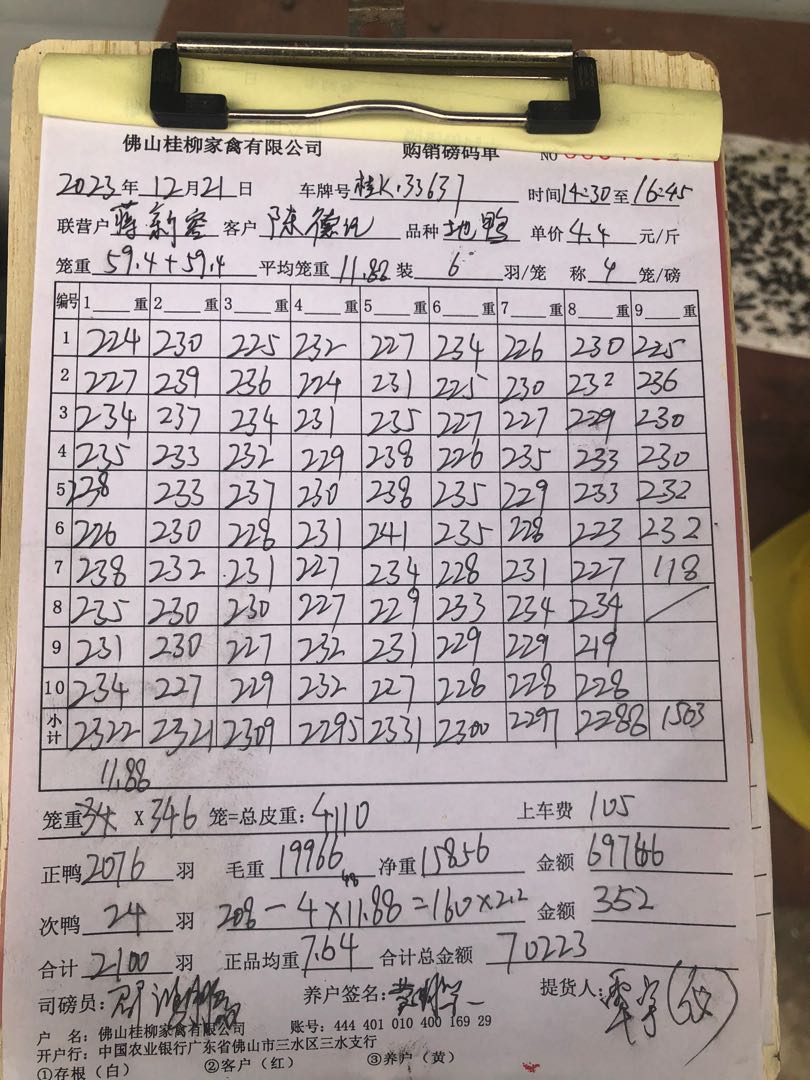 佛山桂柳家禽有限公司 购销磅码单 NO
2023年12月21日 车牌号 桂K·33637 时间14:30至16:45
联营户 蒋新容 客户 陈德 品种 地鸭 单价 4.4 元/斤
笼重 59.4+59.4 平均笼重 11.88 装 6 羽/笼 称 4 笼/磅
编号 1 重 2 重 3 重 4 重 5 重 6 重 7 重 8 重 9 重
1 224 230 225 232 227 234 226 230 225
2 227 239 236 224 231 225 230 232 236
3 234 237 234 231 235 227 227 229 230
4 235 233 232 229 238 226 235 233 230
5 238 233 237 230 238 235 229 233 232
6 226 230 228 231 241 235 228 223 232
7 238 232 231 227 234 228 231 227 118
8 235 230 230 227 229 233 234 234
9 231 230 227 232 231 229 229 219
10 234 227 229 232 227 228 228 228
小计 2322 2321 2309 2295 2331 2300 2297 2288 1503
11.88
笼重 X 346 笼=总皮重: 4110 上车费 105
正鸭 2076 羽 毛重 19966 净重 15856 金额 69766
次鸭 24 羽 208-4×11.88=160×2.2 金额 352
合计 2100 羽 正品均重 7.64 合计总金额 70223
司磅员: 养户签名: 提货人:
户 名: 佛山桂柳家禽有限公司 账号: 444 401 010 400 169 29
开户行: 中国农业银行广东省佛山市三水区三水支行
①存根（白） ②客户（红） ③养户（黄）